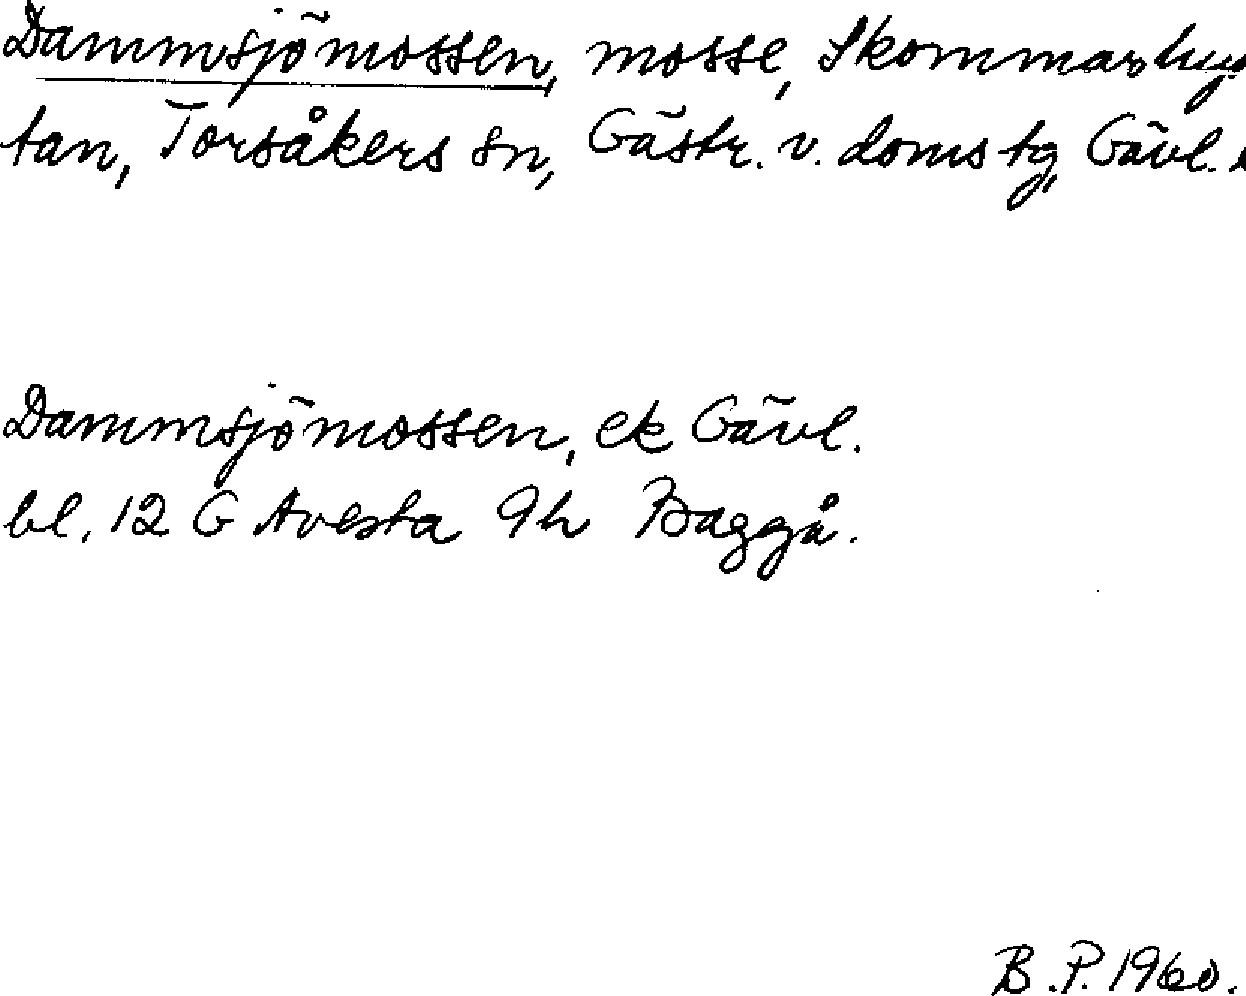 Dammsjömossen, mosse, Skommarhyt
tan, Torsåkers sn, Gästr. v. doms tg, Gävl.
Dammsjömossen, ek Gävl.
bl. 12 G Avesta 9h Baggå.
B.P. 1960.